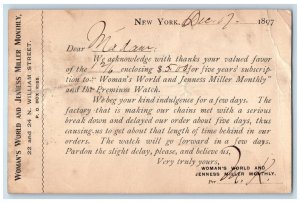 WOMAN'S WORLD AND JENNESS MILLER MONTHLY,
22 and 24 N. WILLIAM STREET.
P. O. BOX
NEW YORK, Dec. 9. 1897
Dear Madam
We acknowledge with thanks your valued favor
of the enclosing $3.00 for five years' subscrip-
tion to "Woman's World and Jenness Miller Monthly"
and the Premium Watch.
We beg your kind indulgence for a few days. The
factory that is making our chains met with a serious
break down and delayed our order about five days, thus
causing us to get about that length of time behind in our
orders. The watch will go forward in a few days.
Pardon the slight delay, please, and believe us,
Very truly yours,
WOMAN'S WORLD AND
JENNESS MILLER MONTHLY.
Per